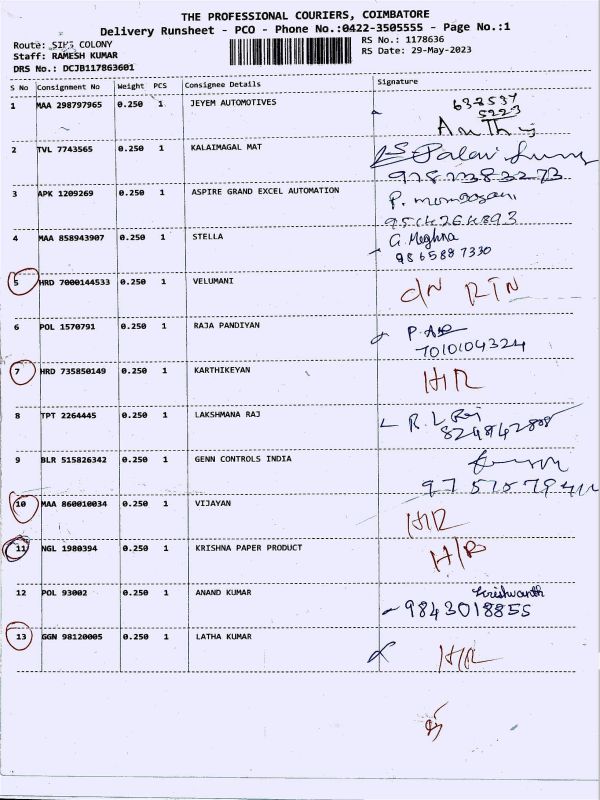 THE PROFESSIONAL COURIERS, COIMBATORE
Delivery Runsheet - PCO - Phone No.:0422-3505555 - Page No.:1
Route: SIHS COLONY
Staff: RAMESH KUMAR
DRS No.: DCJB117863601
RS No.: 1178636
RS Date: 29-May-2023
S No Consignment No Weight PCS Consignee Details Signature
1 MAA 298797965 0.250 1 JEYEM AUTOMOTIVES
2 TVL 7743565 0.250 1 KALAIMAGAL MAT
3 APK 1209269 0.250 1 ASPIRE GRAND EXCEL AUTOMATION
4 MAA 858943907 0.250 1 STELLA G. Meghna
9865887330
5 HRD 7000144533 0.250 1 VELUMANI RTN
6 POL 1570791 0.250 1 RAJA PANDIYAN
7010104324
7 HRD 735850149 0.250 1 KARTHIKEYAN H/R
8 TPT 2264445 0.250 1 LAKSHMANA RAJ R. L Raj
9 BLR 515826342 0.250 1 GENN CONTROLS INDIA
10 MAA 860010034 0.250 1 VIJAYAN H/R
11 NGL 1980394 0.250 1 KRISHNA PAPER PRODUCT H/R
12 POL 93002 0.250 1 ANAND KUMAR
9843018855
13 GGN 98120005 0.250 1 LATHA KUMAR H/R